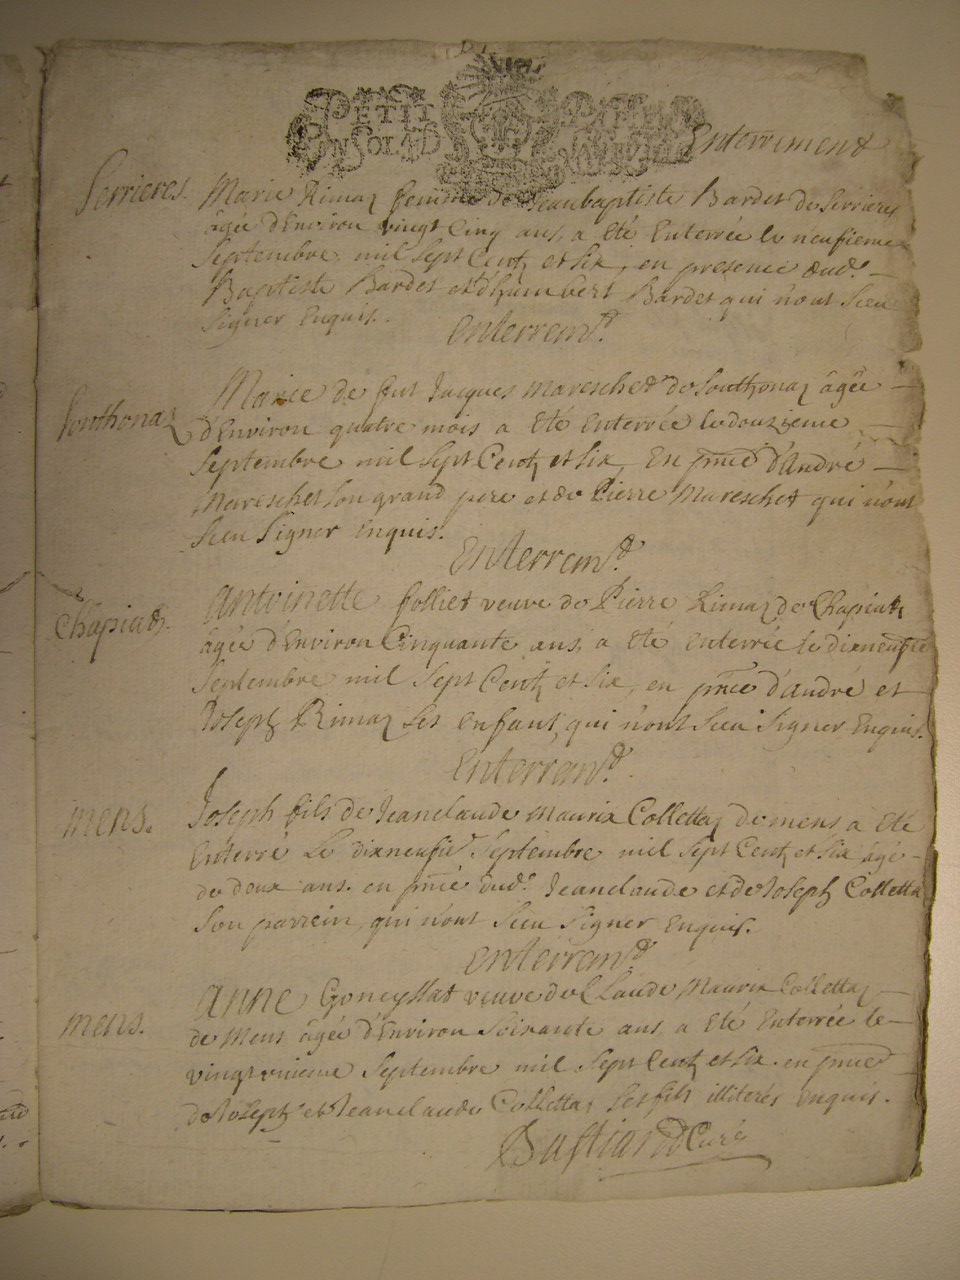 PETIT PAPIER
Enterrement
Serrieres. Marie Rimaz femme de Jeanbaptiste Bardet de Serrieres
âgée d'Environ vingt Cinq ans, a Eté Enterrée le neufieme
Septembre mil Sept Centz et Six, en presence dud.
Baptiste Bardet et d'humbert Bardet qui n'ont Sceu
Signer Enquis.
Enterremt.
Marie de fut Jacques mareschet de Southonaz âgée
Southonaz d'Environ quatre mois a Eté Enterrée le douzieme
Septembre mil Sept Centz et Six, En pnce d'André
Mareschet Son grand pere et de Pierre Mareschet qui n'ont
Sceu Signer Enquis.
Enterremt.
Antoinette folliet veuve de Pierre Rimaz de Chapiatz
Chapiatz. âgée d'Environ Cinquante ans, a Eté Enterrée le dixneufie
Septembre mil Sept Centz et Six, en pnce d'andré et
Joseph Rimaz Ses enfants, qui n'ont Sceu Signer Enquis.
Enterremt.
mens. Joseph fils de Jeanclaude Maurix Collettaz de mens a Eté
Enterré Le dixneufie Septembre mil Sept Centz et Six âgé
de deux ans. en pnce dud. Jeanclaude et de Joseph Colletta
Son parrein, qui n'ont Sceu Signer Enquis.
Enterremt.
Anne veuve de Claude Maurix Collettaz
mens. de Mens âgée d'Environ Soixante ans, a Eté Enterrée le
vingt unieme Septembre mil Sept Centz et Six en pnce
de Joseph et Jeanclaude Collettaz Ses fils illiterés enquis.
Bastiand Curé